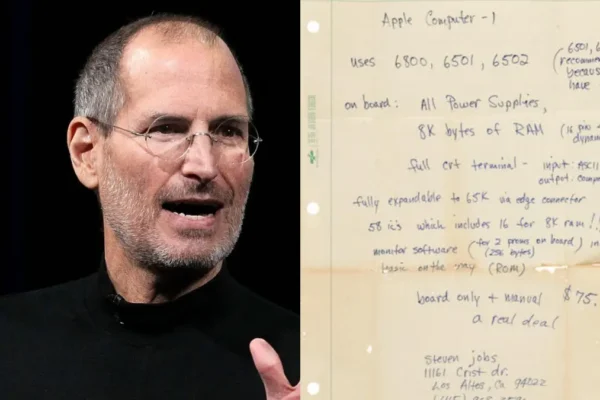 Apple Computer - 1
uses 6800, 6501, 6502
(6501,
recomme
because
have
on board: All Power Supplies,
8K bytes of RAM (16 pin
dynam
full crt terminal - input: ASCII
output: compo
fully expandable to 65K via edge connector
58 ic's which includes 16 for 8K ram!!
monitor software (for 2 proms on board) in
(256 bytes)
basic on the way (ROM)
board only + manual $75.
a real deal
Steven jobs
11161 Crist dr.
Los Altos, Ca 94022
(415)